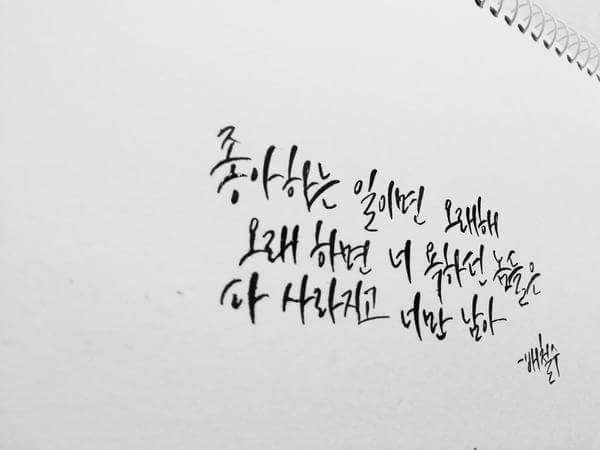 좋아하는 일이면 오래해
오래 하면 너 욕하던 놈들은
다 사라지고 너만 남아
-배철수